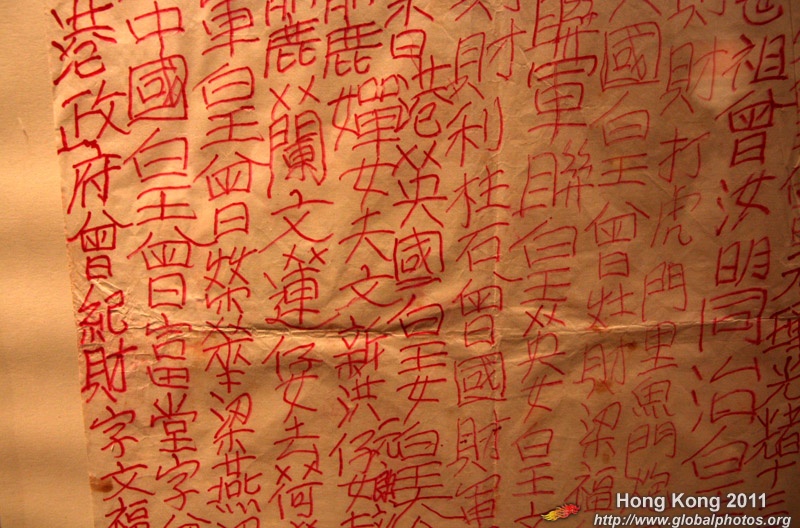 光緒十
祖曾汝明同治皇
財打虎門里魚門炮
國皇曾灶財梁福
聯軍聯皇英女皇文
財利柱石曾國財軍
港英國皇女皇
鹿嬋女夫文新洪仔女
鹿蘭文蓮仔女夫何
軍皇曾榮華梁燕
中國皇曾富堂字
港政府曾紀財字文福
Hong Kong 2011
http://www.globalphotos.org